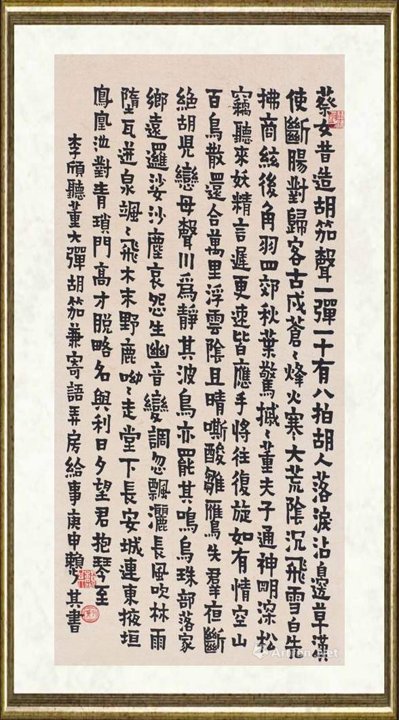 蔡女昔造胡笳聲一彈一十有八拍胡人落淚沾邊草漢
使斷腸對歸客古戍蒼〻烽火寒大荒陰沉飛雪白先
拂商絃後角羽四郊秋葉驚摵〻董夫子通神明深松
竊聽來妖精言遲更速皆應手將往復旋如有情空山
百鳥散還合萬里浮雲陰且晴嘶酸雛雁失羣夜斷
絕胡児戀母聲川爲靜其波鳥亦罷其鳴烏珠部落家
鄉遠邏娑沙塵哀怨生幽音變調忽飄灑長風吹林雨
墮瓦迸泉颯〻飛木末野鹿呦〻走堂下長安城連東掖垣
鳳凰池對青瑣門高才脫略名與利日夕望君抱琴至
李頎聽董大彈胡笳兼寄語弄房給事庚申賴其書